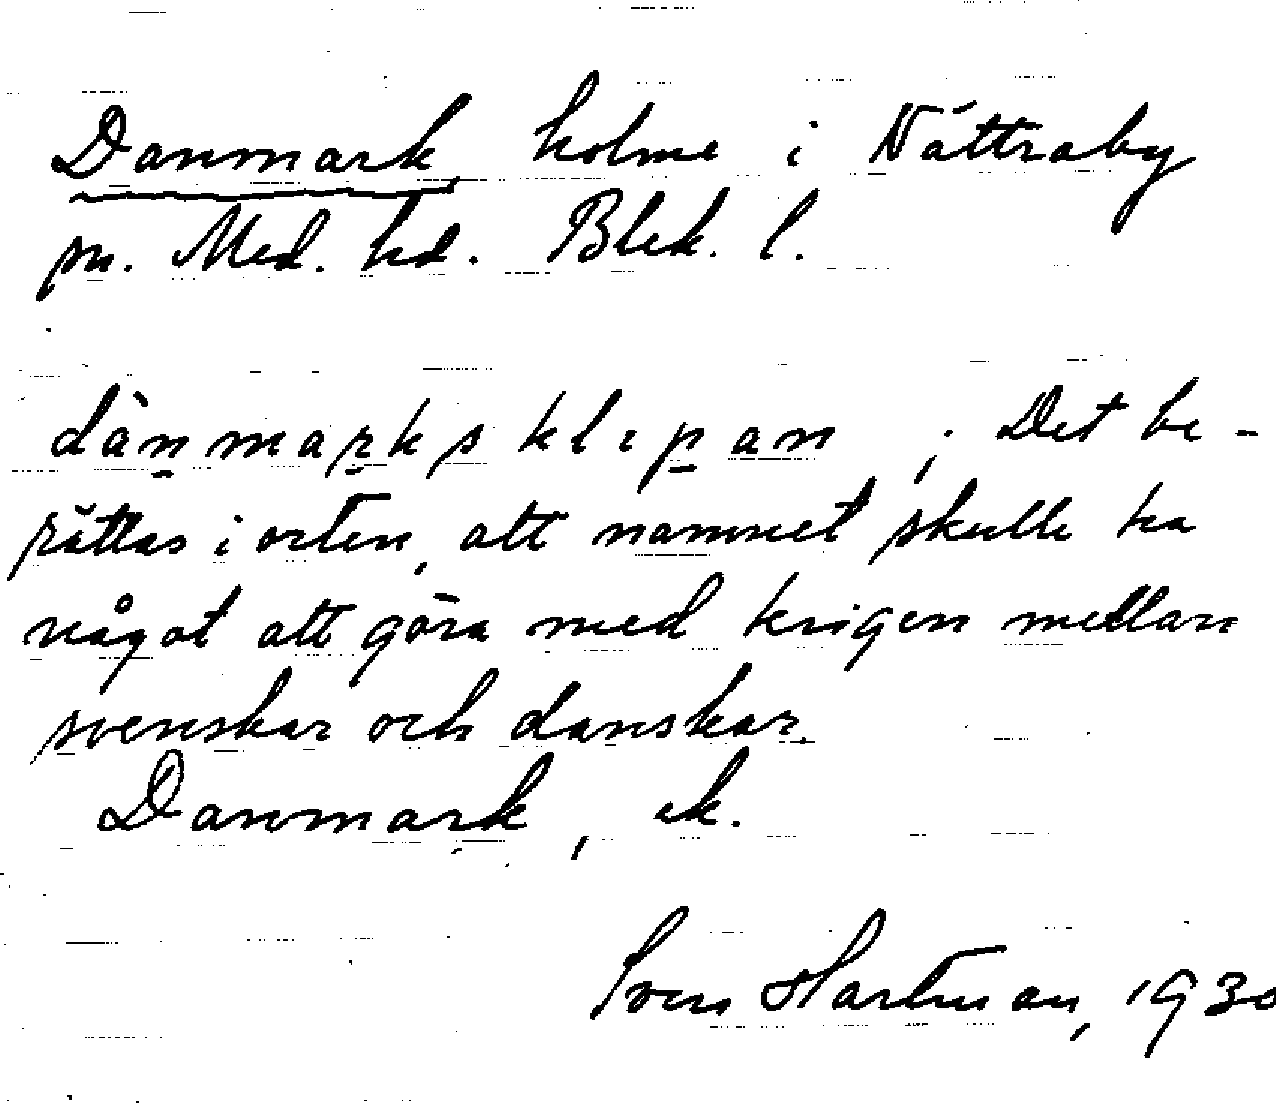 Danmark, holme i Nättraby
sn. Med. hd. Blek. l.
dànmarksklıpan ; Det be-
rättas i orten, att namnet skulle ha
något att göra med krigen mellan
svenskar och danskar.
Danmark, ek.
Sven Hartman, 1930